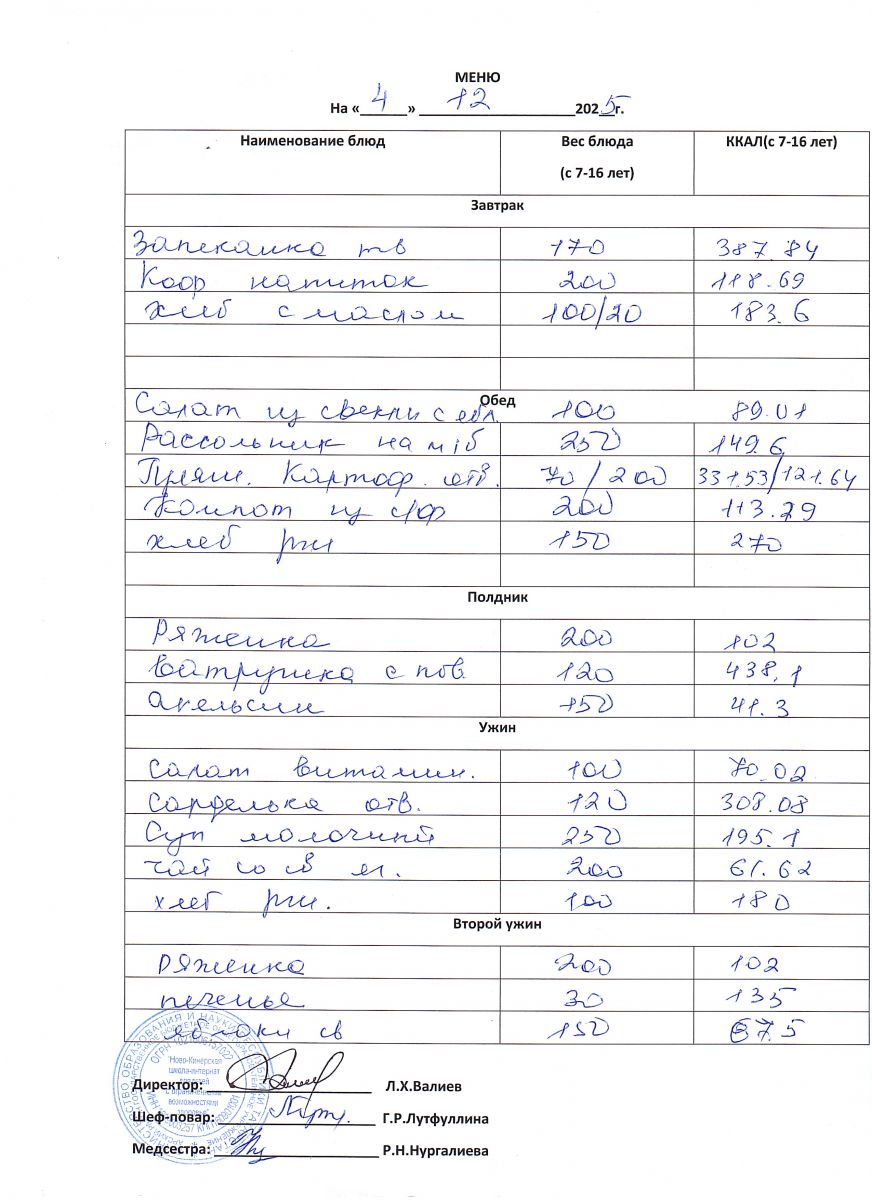 МЕНЮ
На « 4 » 12 2025г.
Наименование блюд Вес блюда (с 7-16 лет) ККАЛ(с 7-16 лет)
Завтрак
Запеканка тв 170 387.84
Коф напиток 200 118.69
Хлеб с маслом 100/20 183.6
Обед
Салат из свеклы с ябл. 100 89.01
Рассольник на м/б 250 149.6
Гуляш. Картоф. отв. 70/200 331.53/121.64
Компот из с/ф 200 113.79
хлеб рж 150 270
Полдник
Ряженка 200 102
Ватрушка с пов. 120 438.1
Апельсин 150 41.3
Ужин
Салат витамин. 100 70.02
Сарделька отв. 120 308.08
Суп молочный 250 195.1
Чай со 200 61.62
хлеб рж. 100 180
Второй ужин
Ряженка 200 102
печенье 30 135
яблоки св 150 67.5
Директор: Л.Х.Валиев
Шеф-повар: Г.Р.Лутфуллина
Медсестра: Р.Н.Нургалиева
"Ново-Кинерская
школа-интернат